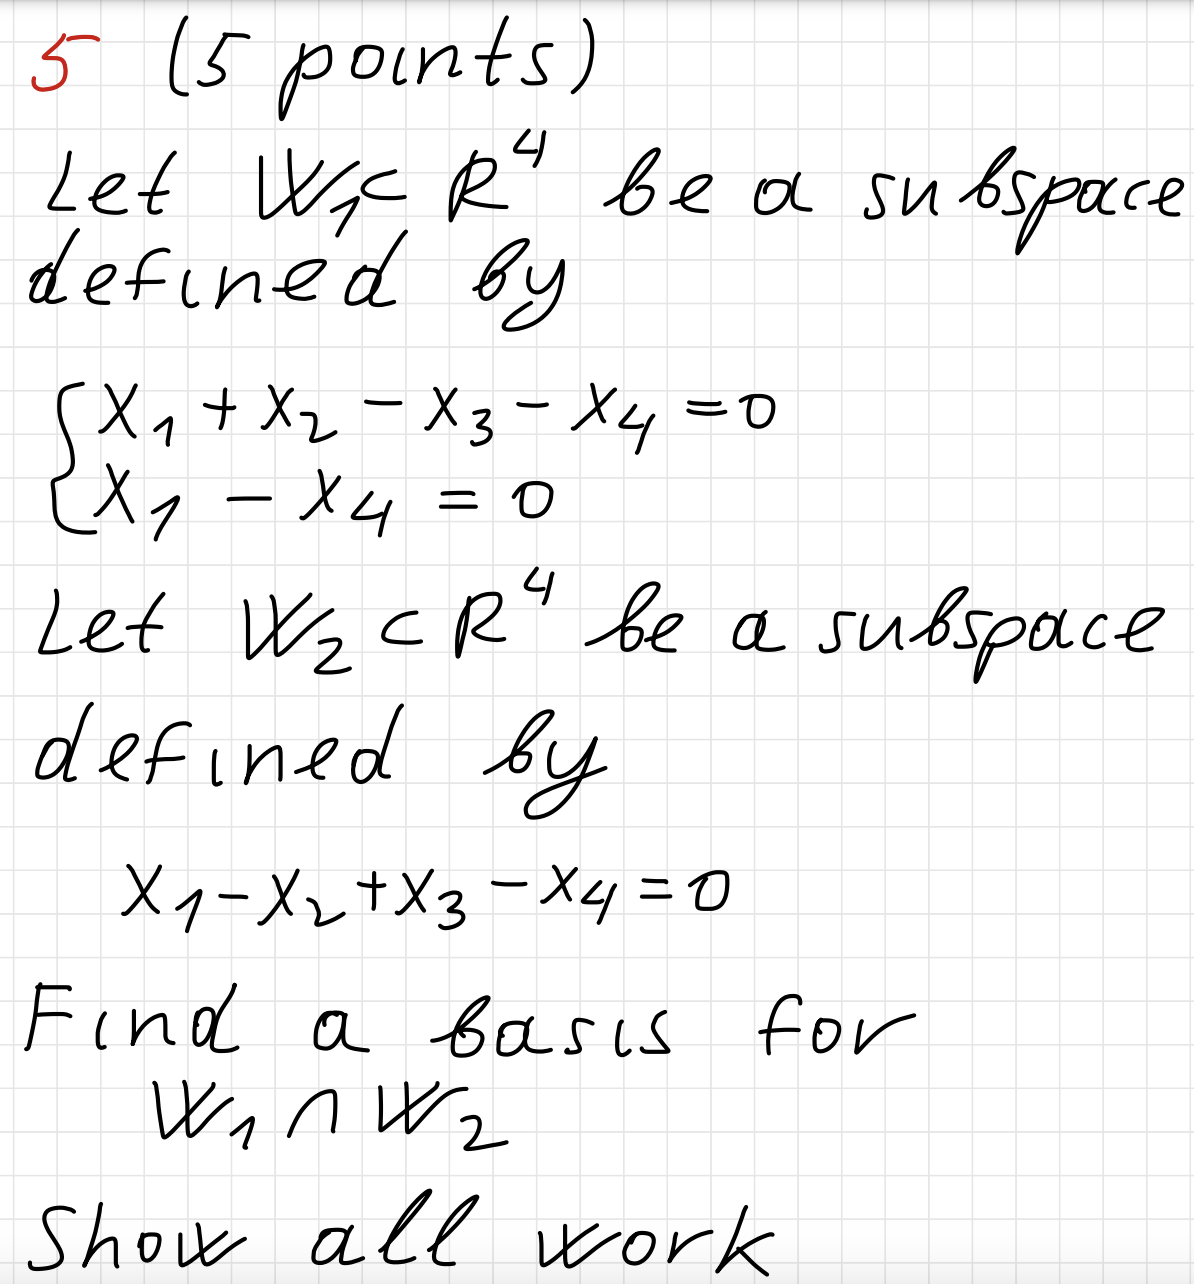 5 (5 points)
Let W₁ ⊂ R⁴ be a subspace
defined by
{ x₁ + x₂ - x₃ - x₄ = 0
x₁ - x₄ = 0
Let W₂ ⊂ R⁴ be a subspace
defined by
x₁ - x₂ + x₃ - x₄ = 0
Find a basis for
W₁ ∩ W₂
Show all work